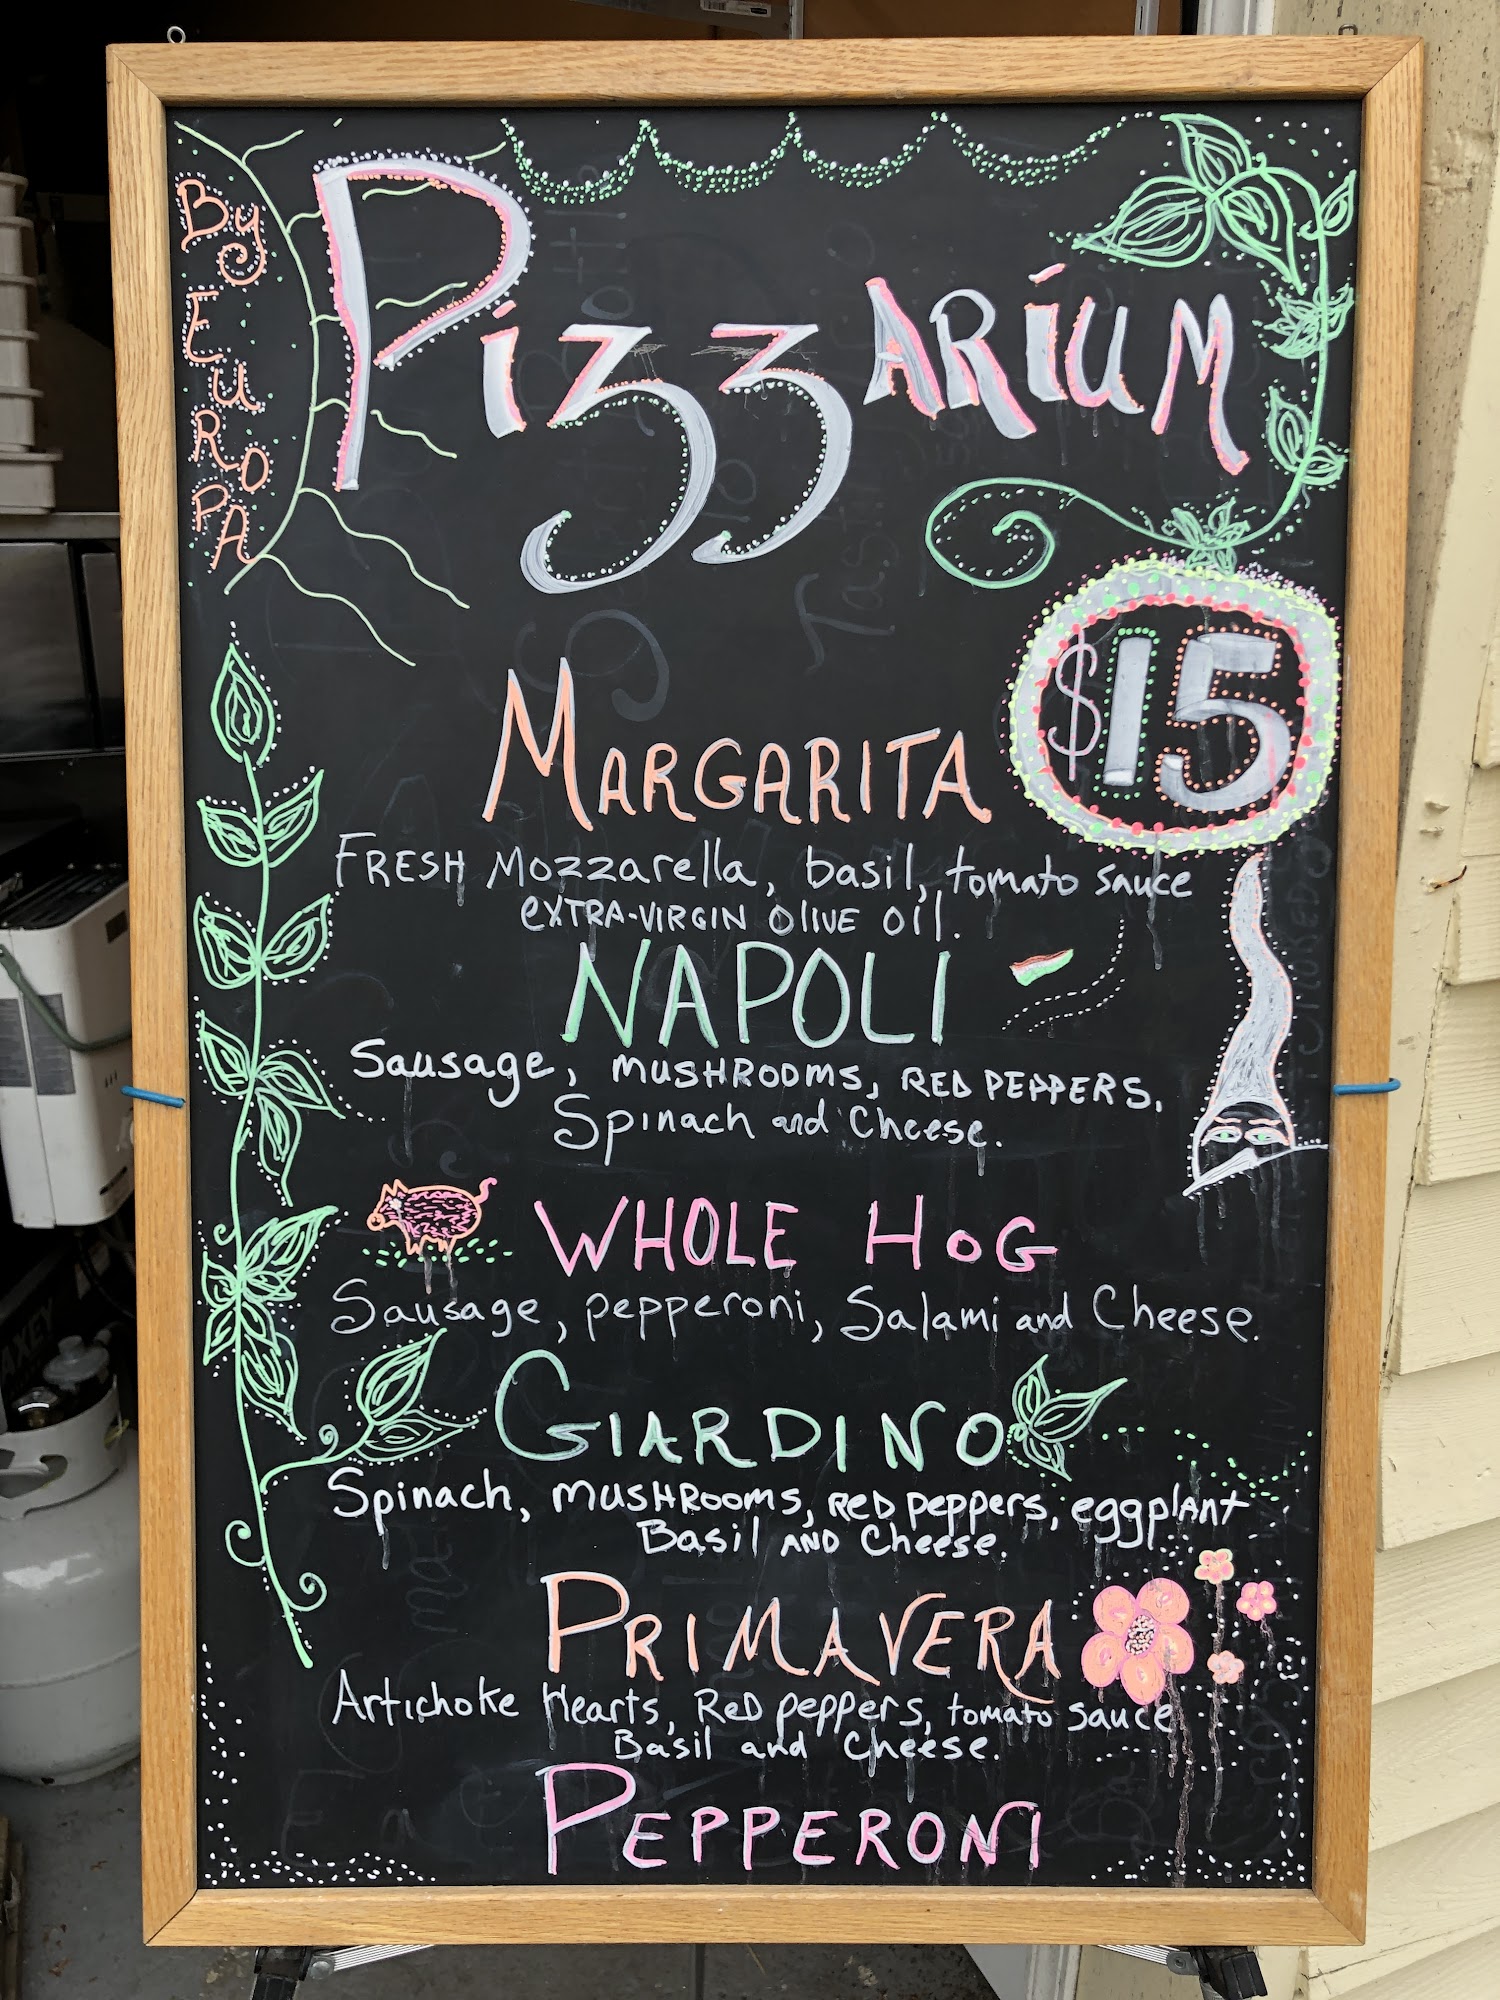 By EUROPA
PizzARIUM
$15
MARGARITA
FRESH Mozzarella, basil, tomato sauce
eXTRA-VIRGIN OlIVE OIl.
NAPOLI
Sausage, MUSHROOMS, RED PEPPERS,
Spinach and Cheese.
WHOLE HOG
Sausage, pepperoni, Salami and Cheese.
GIARDINO
Spinach, MUSHROOMS, RED peppers, eggplANT
Basil AND Cheese.
PRIMAVERA
Artichoke Hearts, RED peppers, tomato sauce
Basil and Cheese.
PEPPERONI